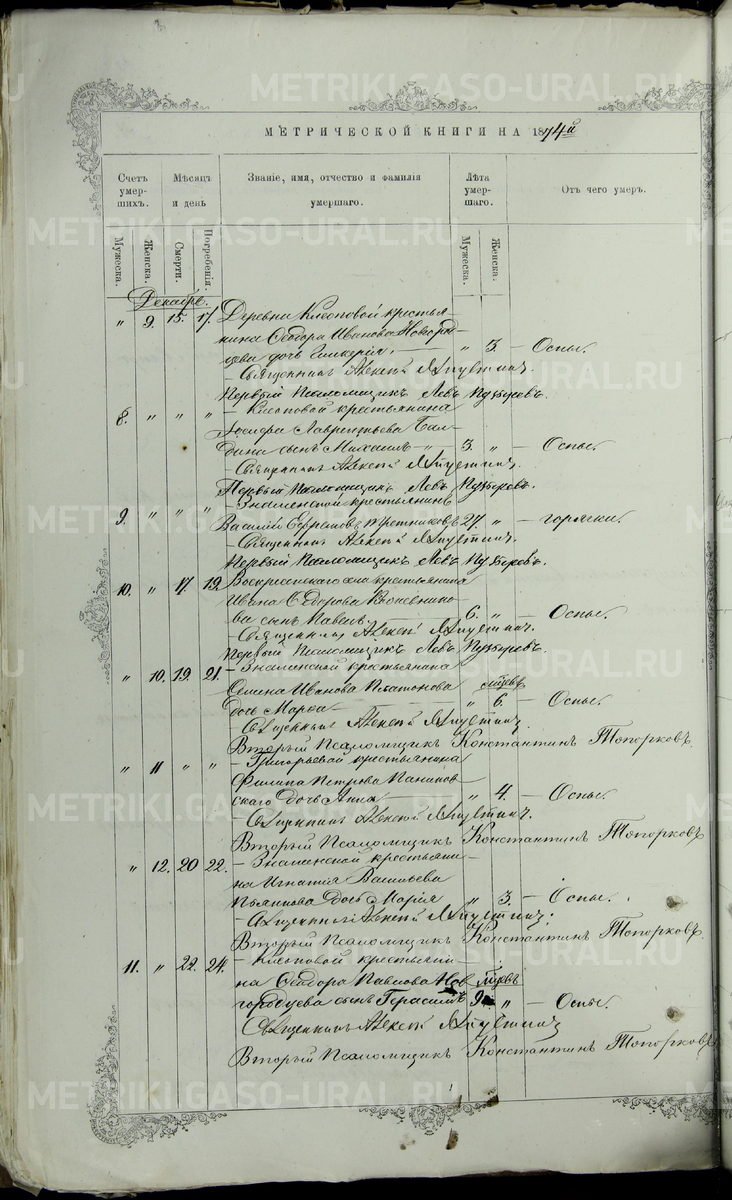 МЕТРИЧЕСКОЙ КНИГИ НА 1874й
Счетъ умер-шихъ. Мѣсяцъ и день Званіе, имя, отчество и фамилія умершаго. Лѣта умер-шаго. Отъ чего умеръ.
Мужеска. Женска. Смерти. Погребенія. Мужеска. Женска.
Декабрь.
" 9. 15. 17. Деревни Клеоповой крестья-
нина Ѳеодора Иванова Новгород-
цева дочь Гликерія. " 3. — Оспы.
— Священникъ Алексѣй
Первый Псаломщикъ Левъ Пузыревъ.
8. " " " — Клеоповой крестьянина
Іосифа Лаврентьева Бал-
дина сынъ Михаилъ — 3. " — Оспы.
— Священникъ Алексѣй
Первый Псаломщикъ Левъ Пузыревъ.
9. " " " — Знаменской крестьянинъ
Василій Ефремовъ 27. " — горячки.
— Священникъ Алексѣй
Первый Псаломщикъ Левъ Пузыревъ.
10. " 17. 19. Воскресенскаго села крестьянина
Ивана Ѳедорова
ва сынъ Павелъ 6. " — Оспы.
— Священникъ Алексѣй
Первый Псаломщикъ Левъ Пузыревъ.
" 10. 19. 21. — Знаменской крестьянина
Семена Иванова Платонова мѣсяцъ
дочь Марѳа — " 6. — Оспы.
— Священникъ Алексѣй
Второй Псаломщикъ Константинъ Топорковъ.
" 11 " " — Григорьевой крестьянина
Филипа Петрова
скаго дочь Анна — " 4. — Оспы.
— Священникъ Алексѣй
Второй Псаломщикъ Константинъ Топорковъ
" 12. 20 22. — Знаменской крестьяни-
на Игнатія Васильева
Пьянкова дочь Марія " 3. — Оспы.
— Священникъ Алексѣй
Второй Псаломщикъ Константинъ Топорковъ.
11. " 22. 24. — Клеоповой крестьяни-
на Ѳеодора Павлова Нов мѣсяцъ
городцева сынъ Герасимъ 9. " — Оспы.
Священникъ Алексѣй
Второй Псаломщикъ Константинъ Топорковъ
METRIKI.GASO-URAL.RU